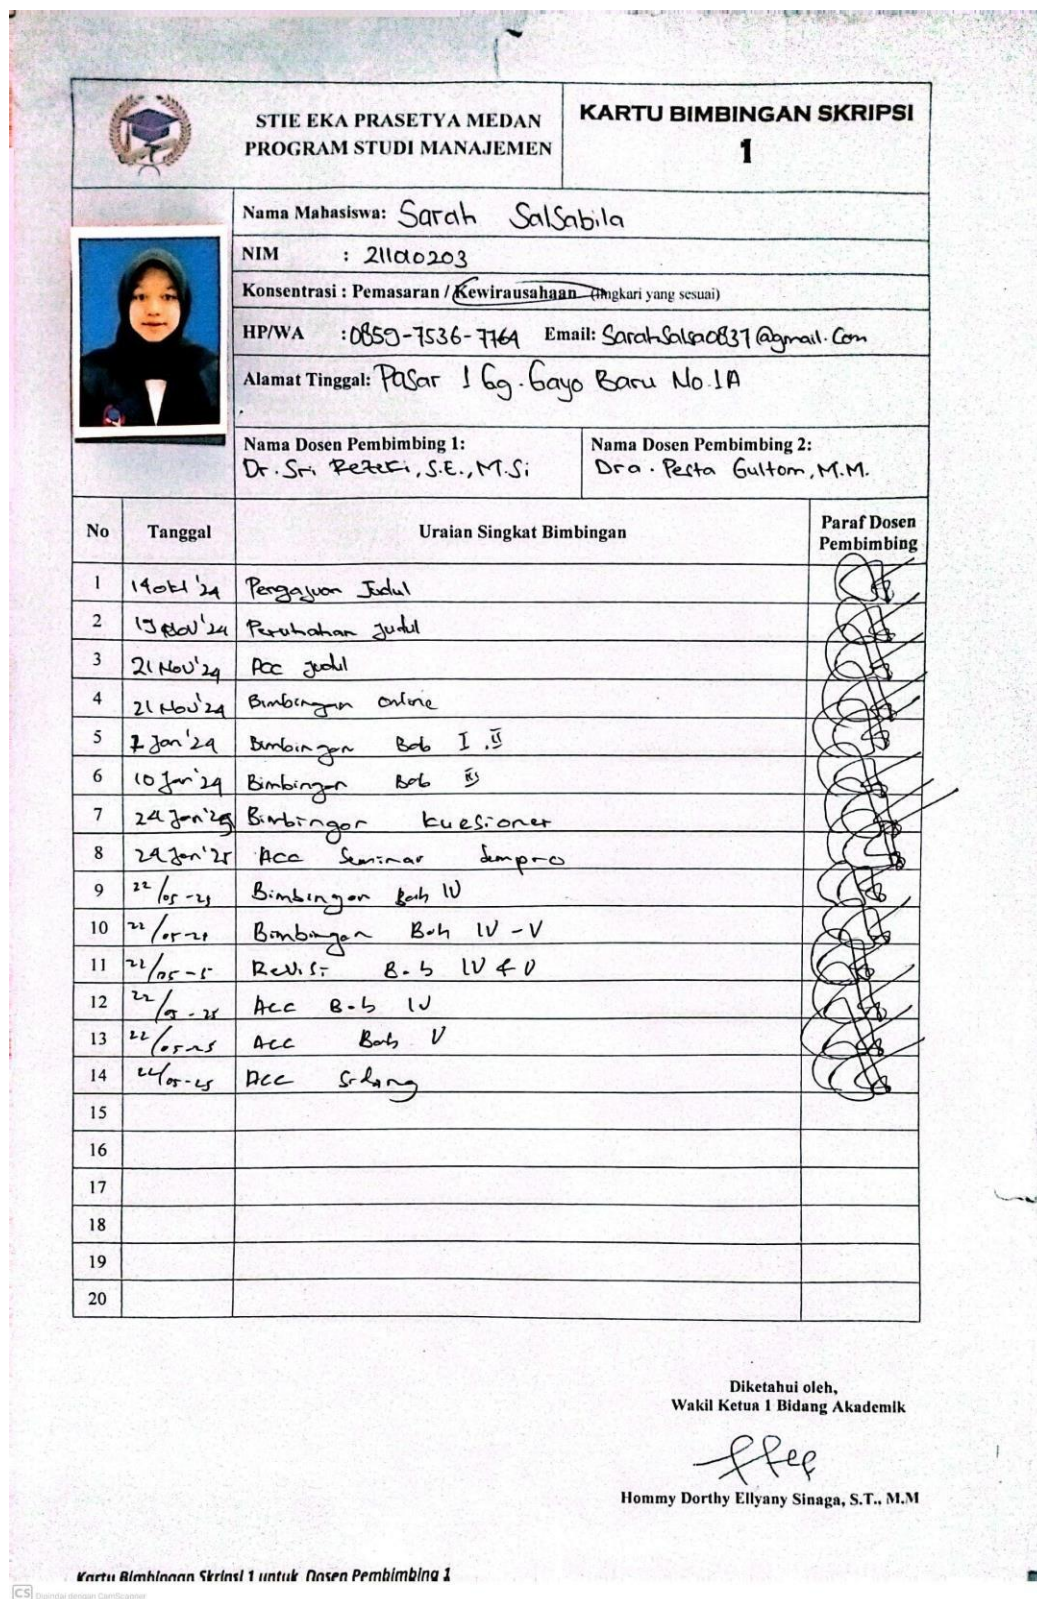 STIE EKA PRASETYA MEDAN
PROGRAM STUDI MANAJEMEN
KARTU BIMBINGAN SKRIPSI
1
Nama Mahasiswa: Sarah Salsabila
NIM : 211010203
Konsentrasi : Pemasaran / Kewirausahaan (lingkari yang sesuai)
HP/WA : 0859-7536-7764 Email: SarahSalsa0837@gmail.Com
Alamat Tinggal: Pasar 1 Gg. Gayo Baru No.1A
Nama Dosen Pembimbing 1:
Dr. Sri Rezeki, S.E., M.Si
Nama Dosen Pembimbing 2:
Dra. Pesta Gultom, M.M.
No Tanggal Uraian Singkat Bimbingan Paraf Dosen Pembimbing
1 14 okt '24 Pengajuan Judul
2 19 Nov '24 Perubahan Judul
3 21 Nov '24 Acc Judul
4 21 Nov '24 Bimbingan online
5 7 Jan '24 Bimbingan Bab I, II
6 10 Jan '24 Bimbingan Bab III
7 24 Jan '25 Bimbingan kuesioner
8 24 Jan '25 ACC Seminar Sempro
9 22/05-25 Bimbingan Bab IV
10 22/05-25 Bimbingan Bab IV - V
11 22/05-5 Revisi Bab IV & V
12 22/05-25 Acc Bab IV
13 22/05-25 Acc Bab V
14 22/05-25 Acc Sidang
15
16
17
18
19
20
Diketahui oleh,
Wakil Ketua 1 Bidang Akademik
Hommy Dorthy Ellyany Sinaga, S.T., M.M
Kartu Bimbingan Skripsi 1 untuk Dosen Pembimbing 1
CS Dipindai dengan CamScanner